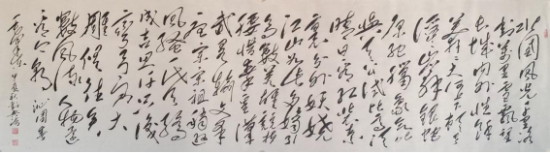 北国风光千里冰
封万里雪飘望
长城内外惟余
莽莽大河上下顿
失滔滔山舞银蛇
原驰蜡象欲
与天公试比高须
晴日看红装素
裹分外妖娆
江山如此多娇引
无数英雄竞折
腰惜秦皇汉
武略输文采
唐宗宋祖稍逊
风骚一代天骄
成吉思汗只识
弯弓射大
雕俱往矣
数风流人物还
看今朝
沁园春